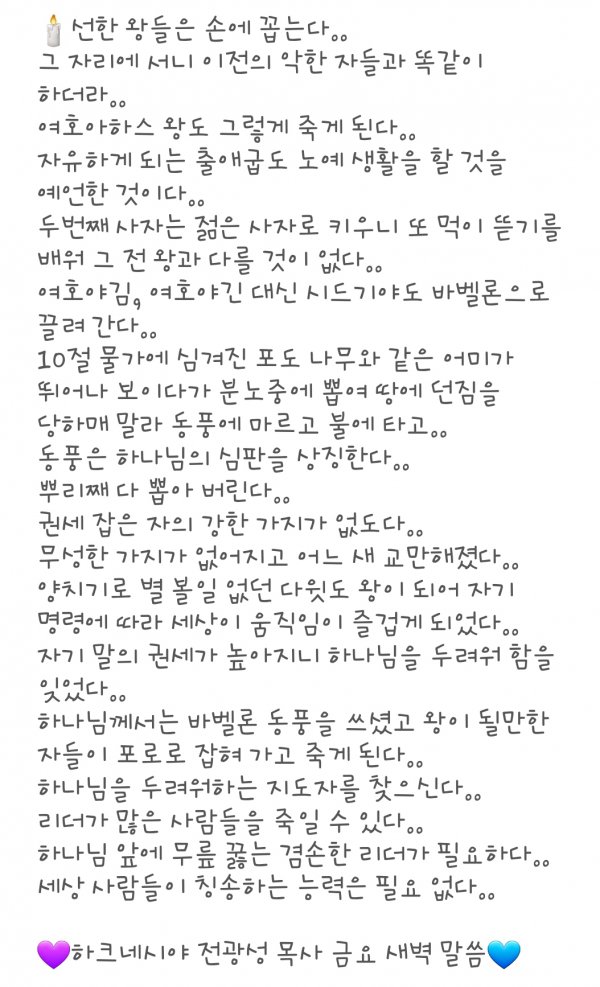 🕯️선한 왕들은 손에 꼽는다。。
그 자리에 서니 이전의 악한 자들과 똑같이
하더라。。
여호아하스 왕도 그렇게 죽게 된다。。
자유하게 되는 출애굽도 노예 생활을 할 것을
예언한 것이다。。
두번째 사자는 젊은 사자로 키우니 또 먹이 뜯기를
배워 그 전 왕과 다를 것이 없다。。
여호야김, 여호야긴 대신 시드기야도 바벨론으로
끌려 간다。。
10절 물가에 심겨진 포도 나무와 같은 어미가
뛰어나 보이다가 분노중에 뽑여 땅에 던짐을
당하매 말라 동풍에 마르고 불에 타고。。
동풍은 하나님의 심판을 상징한다。。
뿌리째 다 뽑아 버린다。。
권세 잡은 자의 강한 가지가 없도다。。
무성한 가지가 없어지고 어느 새 교만해졌다。。
양치기로 별 볼일 없던 다윗도 왕이 되어 자기
명령에 따라 세상이 움직임이 즐겁게 되었다。。
자기 말의 권세가 높아지니 하나님을 두려워 함을
잊었다。。
하나님께서는 바벨론 동풍을 쓰셨고 왕이 될만한
자들이 포로로 잡혀 가고 죽게 된다。。
하나님을 두려워하는 지도자를 찾으신다。。
리더가 많은 사람들을 죽일 수 있다。。
하나님 앞에 무릎 꿇는 겸손한 리더가 필요하다。。
세상 사람들이 칭송하는 능력은 필요 없다。。
💜하크네시야 전광성 목사 금요 새벽 말씀💙